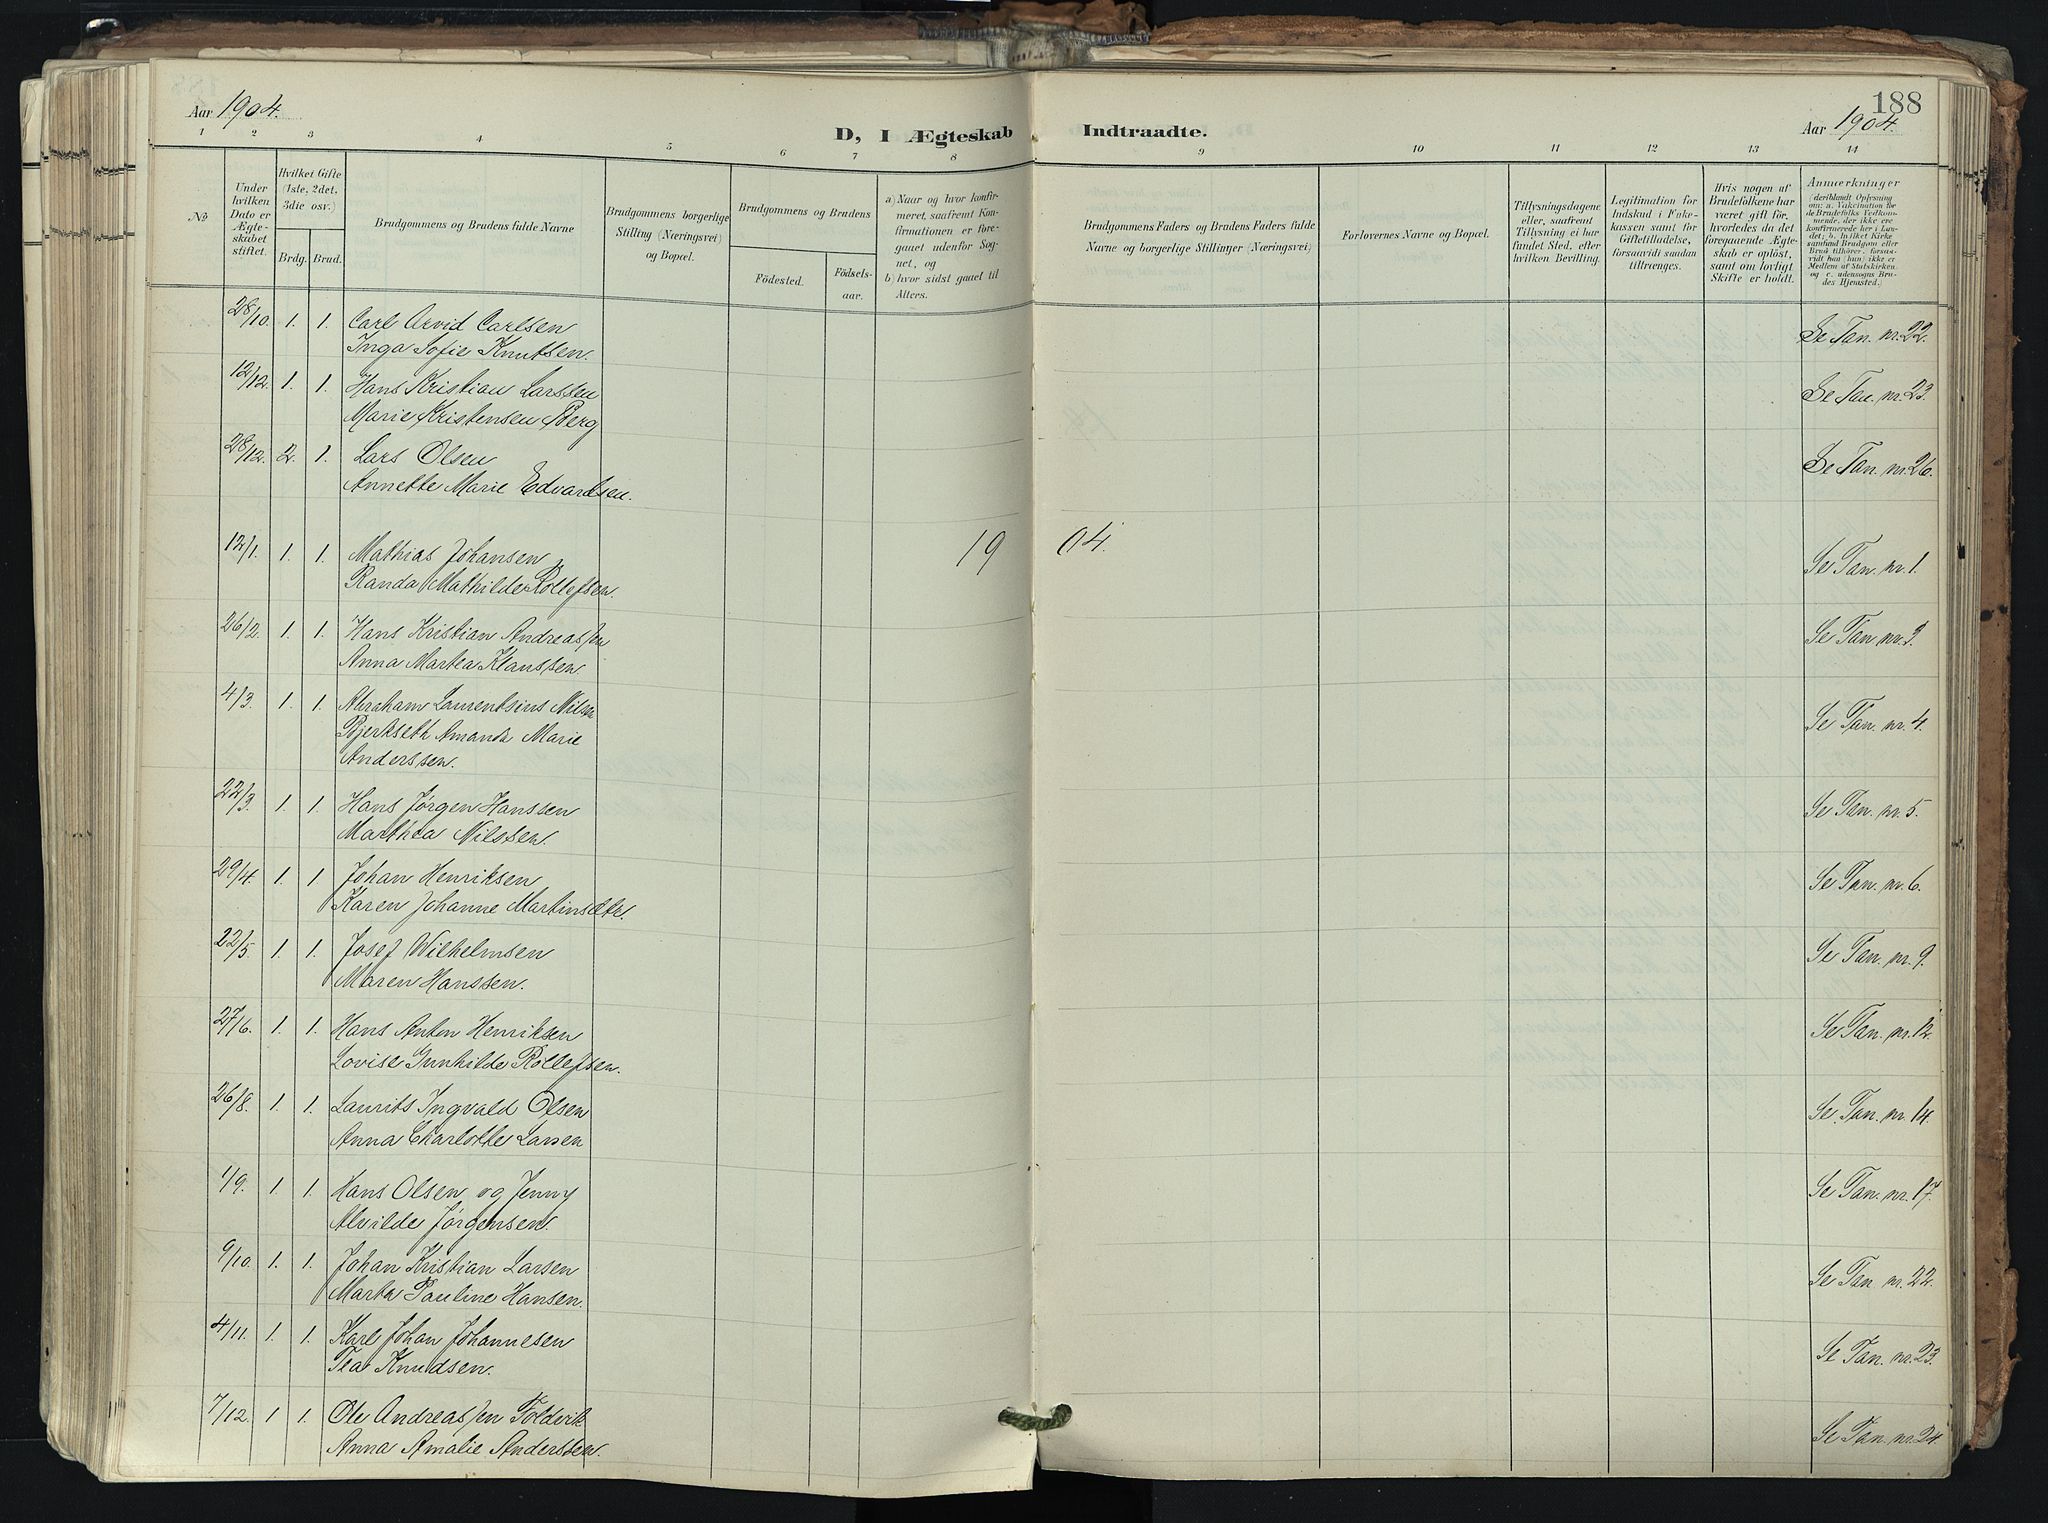 188
Aar 1904.
D, I Ægteskab Indtraadte.
Aar 1904.
1 2 3 4 5 6 7 8 9 10 11 12 13 14
No
Under hvilken Dato er Ægteskabet stiftet.
Hvilket Gifte (1ste, 2det, 3die osv.)
Brdg. Brud.
Brudgommens og Brudens fulde Navne
Brudgommens borgerlige Stilling (Næringsvei) og Bopæl.
Brudgommens og Brudens
Födested. Födselsaar.
a) Naar og hvor konfirmeret, saafremt Konfirmationen er foregaaet udenfor Sognet, og
b) hvor sidst gaaet til Alters.
Brudgommens Faders og Brudens Faders fulde Navne og borgerlige Stillinger (Næringsvei)
Forlovernes Navne og Bopæl.
Tillysningsdagene eller, saafremt Tillysning ei har fundet Sted, efter hvilken Bevilling.
Legitimation for Indskud i Fakekassen samt for Giftetilladelse, forsaavidt saadan tiltrænges.
Hvis nogen af Brudefolkene har været gift för, hvorledes da det foregaaende Ægteskab er oplöst, samt om lovligt Skifte er holdt.
Anmærkninger (deriblandt Oplysning om: a. Vakcination for de Brudefolks Vedkommende, der ikke ere konfirmerede her i Landet; b. hvilket Kirkesamfund Brudgom eller Brud tilhörer, forsaavidt han (hun) ikke er Medlem af Statskirken og c. udensogns Brudes Hjemsted.)
28/10. 1. 1. Carl Arvid Carlsen Se Tan. nr. 22.
Inga Sofie Knutsen.
12/12. 1. 1. Hans Kristian Larssen Se Tan. nr. 23.
Marie Kristensen Berg
28/12. 2. 1. Lars Olsen Se Tan. nr. 26.
Annette Marie Edvardsen.
1904.
12/1. 1. 1. Mathias Johansen Se Tan. nr. 1.
Randa Mathilde Rollefsen.
26/2. 1. 1. Hans Kristian Andreassen Se Tan. nr.
Anna Martea Klaussen.
4/3. 1. 1. Abraham Laurentsius Nilsen Se Tan. nr. 4.
Bjerkseth Amanda Marie
Anderssen.
22/3. 1. 1. Hans Jørgen Hanssen Se Tan. nr. 5.
Marthea Nilssen.
29/4. 1. 1 Johan Henriksen Se Tan. nr. 6.
Karen Johanne Martinsdtr.
22/5. 1. 1. Josef Wilhelmsen Se Tan. nr. 9.
Maren Hanssen.
27/6. 1. 1. Hans Anton Henriksen Se Tan. nr. 12.
Lovise Gunhilde Rollefsen.
26/8. 1. 1. Laurits Ingvald Olsen Se Tan. nr. 14.
Anna Charlotte Larsen
1/9. 1. 1. Hans Olsen og Jenny Se Tan. nr. 17.
Alvilde Jørgensen.
9/10. 1. 1. Johan Kristian Larsen Se Tan nr. 22.
Marta Pauline Hansen.
4/11. 1. 1. Karl Johan Johannesen Se Tan. nr. 23.
Tea Knudsen.
7/12. 1 1. Ole Andreassen Foldvik Se Tan. nr. 24.
Anna Amalie Anderssen.